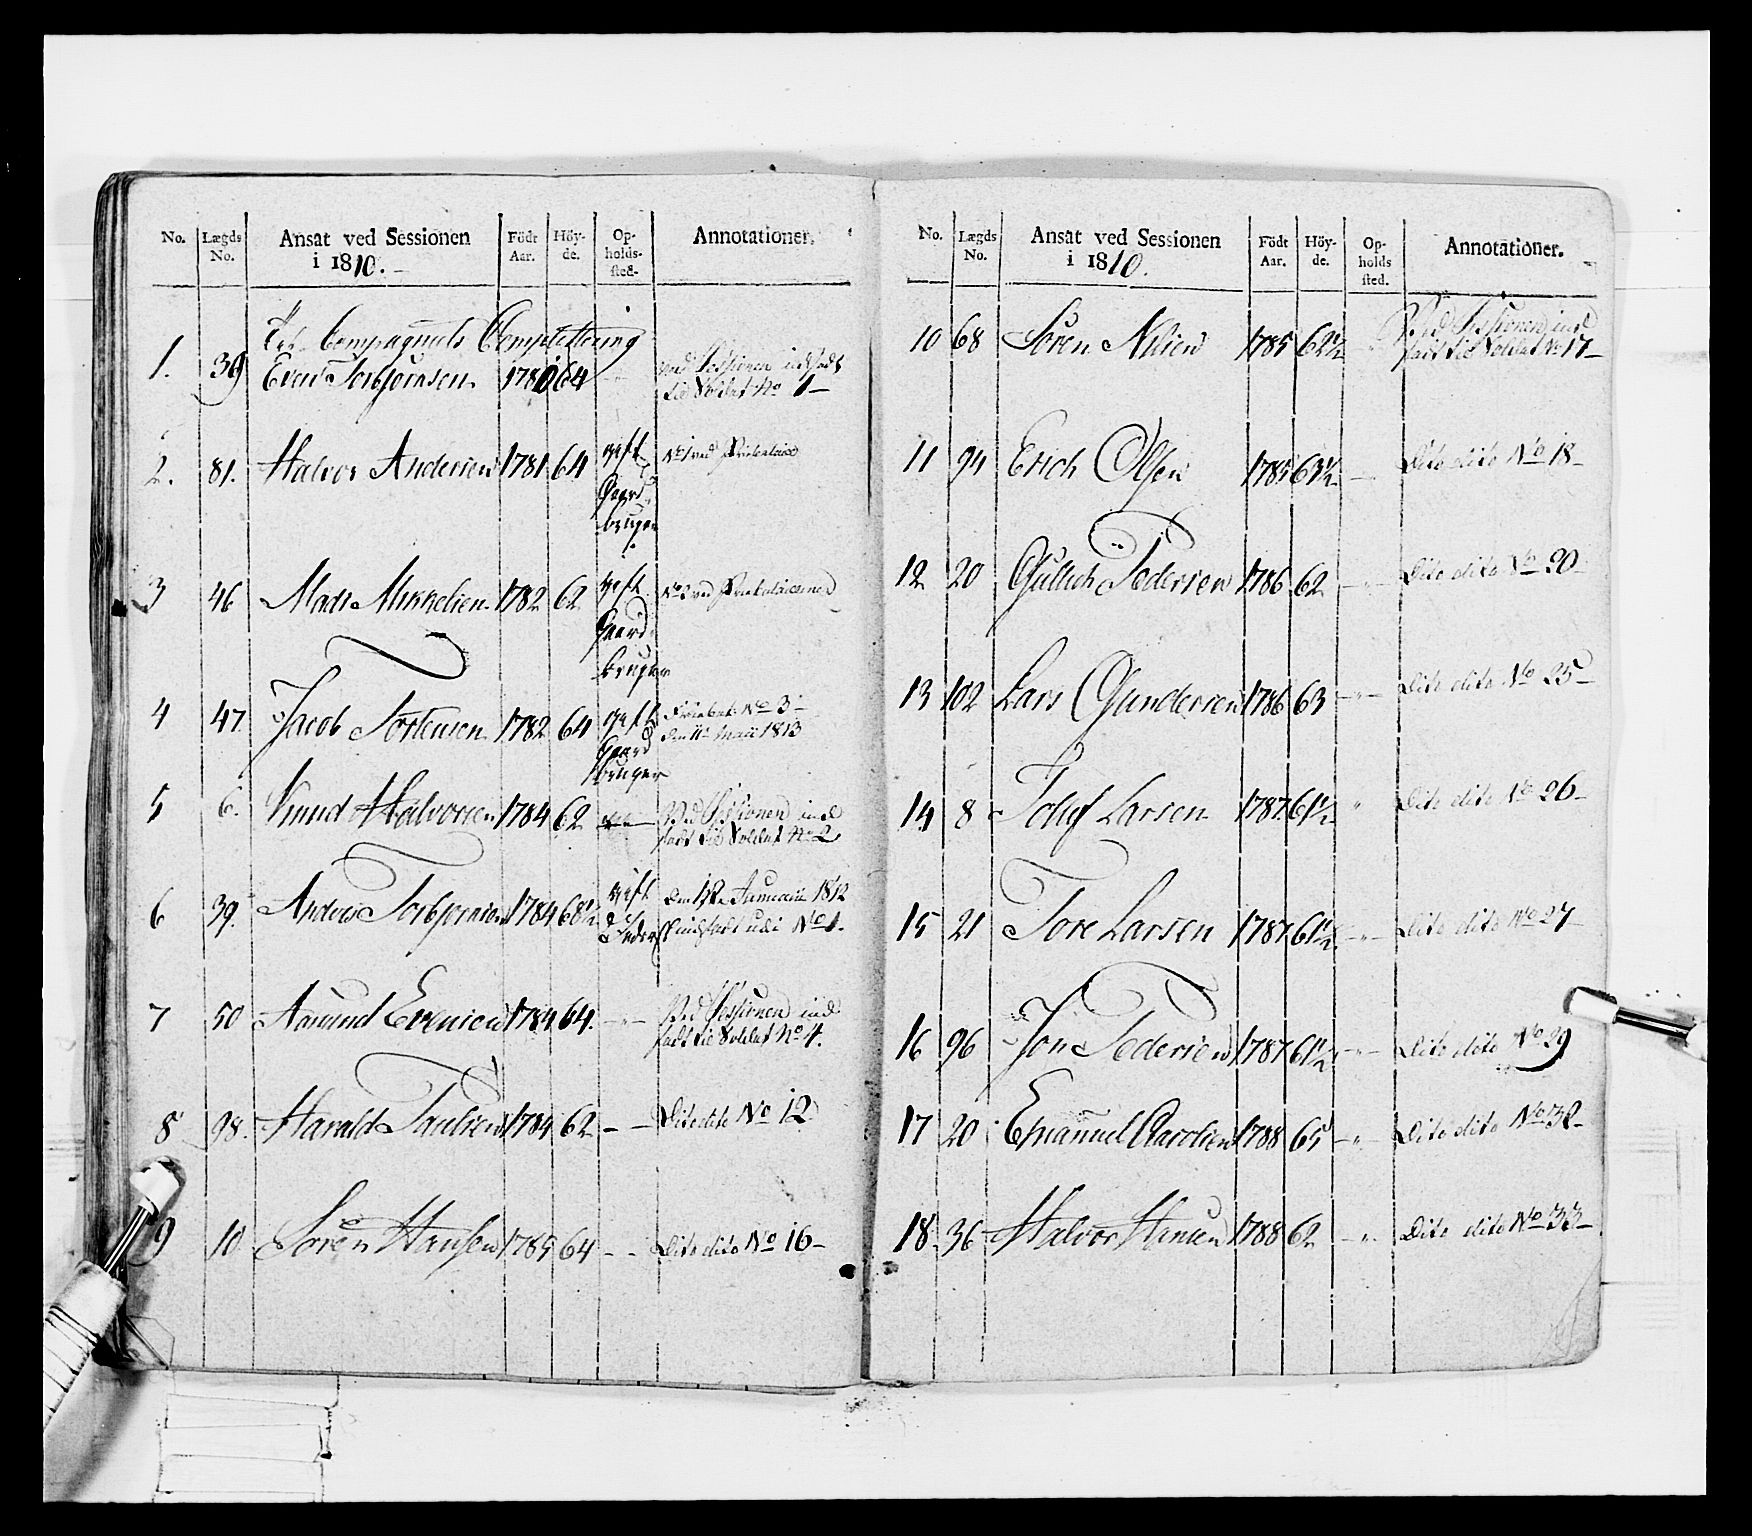 No. Lægds No. Ansat ved Sessionen i 1810. Födt Aar. Höyde. Opholdssted. Annotationer.
Compagniets Complettering
1. 39 Even Torbjörnsen 1780 64 Ved Sessionen indsadt
til Soldat No 1
2. 81. Halvor Andersen 1781 64 gift No 1 ved
Gaard
bruger
3 46 Mads Mikkelsen 1782 62 gift No 2 ved
Gaard
bruger
4 47 Jacob Tortensen 1782 64 gift No 3
Gaard den 11te 1813
bruger
5 6. Knud Halvorsen 1784 62 Ved Sessionen ind
sadt til Soldat No 2
6 39. Anders Torbjörnsen 1784 68½ gift den 12te Januarii 1812
indsadt udi No 1.
7 50 Amund Evensen 1784 64. Ved Sessionen ind
sadt til Soldat No 4.
8 98. Harald Paulsen 1784 62 Dito dito No 12
9 10 Sören Hansen 1785 64 Dito dito No 16
No. Lægds No. Ansat ved Sessionen i 1810. Födt Aar. Höyde. Opholds sted. Annotationer.
10 68 Sören Nilsen 1785 62½ Ved Sessionen ind
sadt til Soldat No 17
11 94 Erich Olsen 1785 63½ Dito dito No 18
12 20 Gullich Pedersen 1786 62 Dito dito No 20
13 102 Lars Gundersen 1786 63 Dito dito No 25
14 8 Larsen 1787 61½ Dito dito No 26
15 21 Tore Larsen 1787 61½ Dito dito No 27
16 96 Jon Pedersen 1787 61½ Dito dito No 29
17 20 Emanuel Carolsen 1788 65 Dito dito No 32
18 36 Halvor Hansen 1788 62 Dito dito No 33